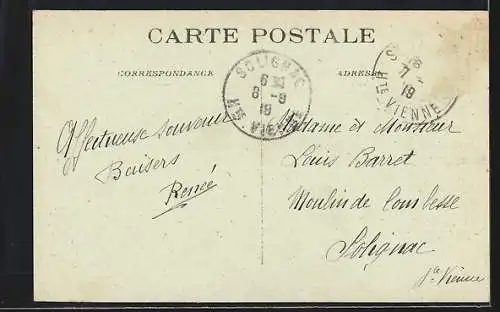 CARTE POSTALE
CORRESPONDANCE
ADRESSE
SOLIGNAC
6 30
8 - 8
19
HTE VIENNE
7
19
HTE VIENNE
Affectueux souvenir
Baisers
Renée
Madame et Monsieur
Louis Barret
Moulin de
Solignac
Hte Vienne